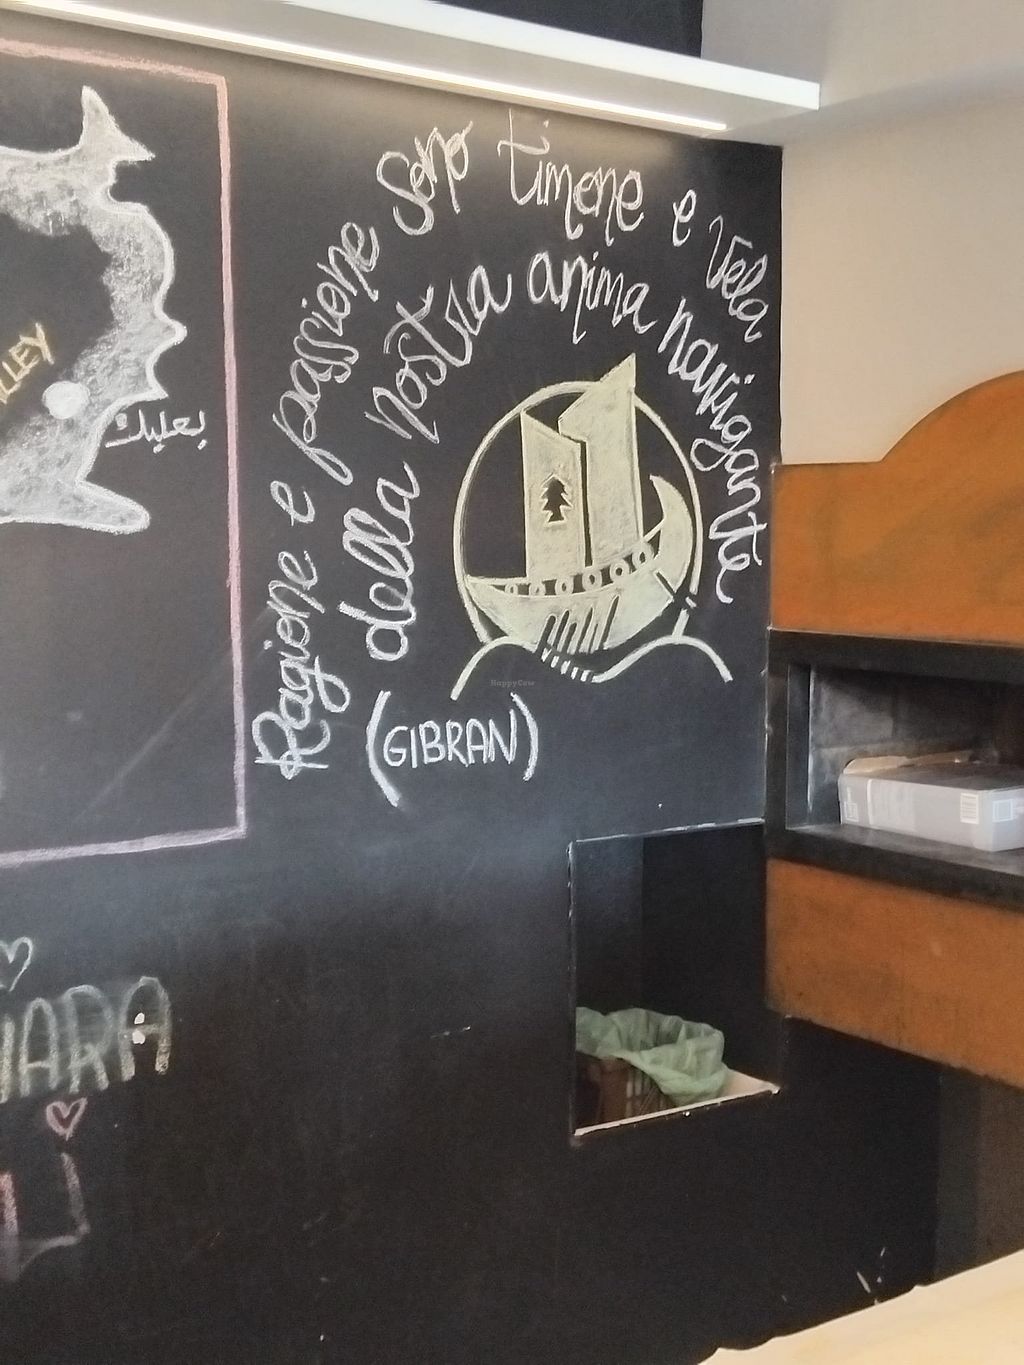 Ragione e passione sono timone e vela
della nostra anima navigante
(GIBRAN)
LLEY
بعلبك
IARA
HappyCow